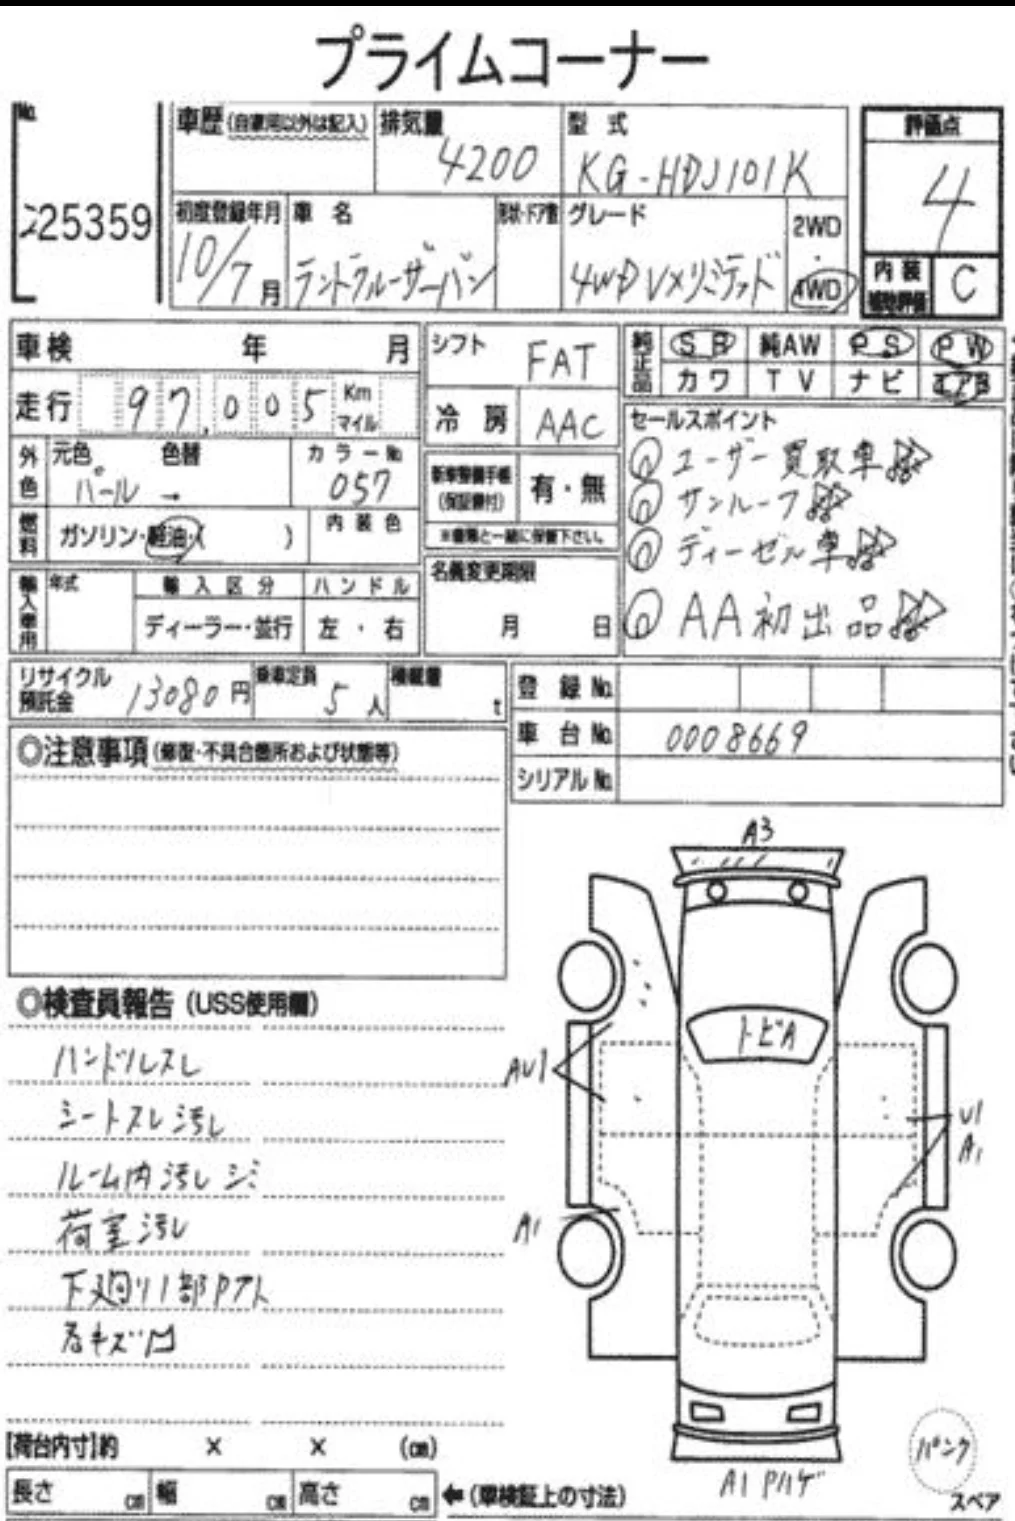 プライムコーナー
No.
25359
車歴(自家用以外は記入)
排気量
4200
型式
KG-HDJ101K
評価点
4
初度登録年月
10/7月
車名
ランドクルーザーバン
形状・ドア数
グレード
4WD VXリミテッド
2WD
・
4WD
内装
補助評価
C
車検 年 月
走行 97,005 Km
マイル
外色
元色 色替
パール →
カラーNo.
057
燃料
ガソリン・軽油・( )
内装色
輸入車用
年式
輸入区分 ハンドル
ディーラー・並行 左・右
シフト
FAT
冷房
AAC
新車整備手帳
(保証書付)
有・無
※書類と一緒に保管下さい。
名義変更期限
月 日
純正品
SR 純AW PS PW
カワ TV ナビ エアB
セールスポイント
ユーザー買取車
サンルーフ
ディーゼル車
AA初出品
リサイクル
預託金
13080円
乗車定員
5人
積載量
t
登録No.
車台No. 0008669
シリアルNo.
◎注意事項(修復・不具合箇所および状態等)
◎検査員報告(USS使用欄)
ハンドルスレ
シートスレ汚レ
ルーム内汚レシミ
荷室汚レ
下廻り1部Pアト
A3
トビA
AU1
U1
A1
A1
A1 Pハゲ
パンク
スペア
[荷台内寸]約 × × (cm)
長さ cm 幅 cm 高さ cm
←(車検証上の寸法)